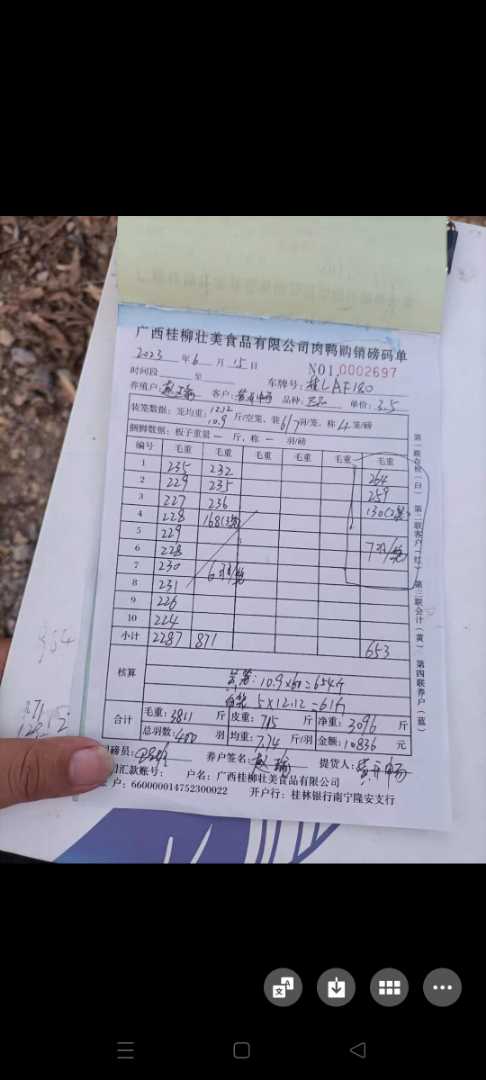 广西桂柳壮美食品有限公司肉鸭购销磅码单
2023 年 6 月 15 日 NO1.0002697
时间段 至 车牌号: 桂LAF180
养殖户: 客户: 品种: 单价: 3.5
装笼数据: 笼均重: 12.12 10.9 斤/空笼、装 6/7 羽/笼、称 4 笼/磅
捆脚数据: 板子重量 一 斤, 称 一 羽/磅
编号 毛重 毛重 毛重 毛重 毛重 毛重
1 235 232 264
2 229 235 259
3 227 236 130(2笼)
4 228 168(3笼)
5 229
6 228 7羽/笼
7 230 6羽/笼
8 231
9 226
10 224
小计 2287 871 653
核算
10.9×60=654斤
5×12.12=61斤
合计 毛重: 3811 斤 皮重: 715 斤 净重: 3096 斤
总羽数: 400 羽 均重: 7.74 斤/羽 金额: 10836 元
磅员: 养户签名: 提货人:
汇款账号: 户名: 广西桂柳壮美食品有限公司
户: 660000014752300022 开户行: 桂林银行南宁隆安支行
第一联存根(白) 第二联客户(红) 第三联会计(黄) 第四联养户(蓝)